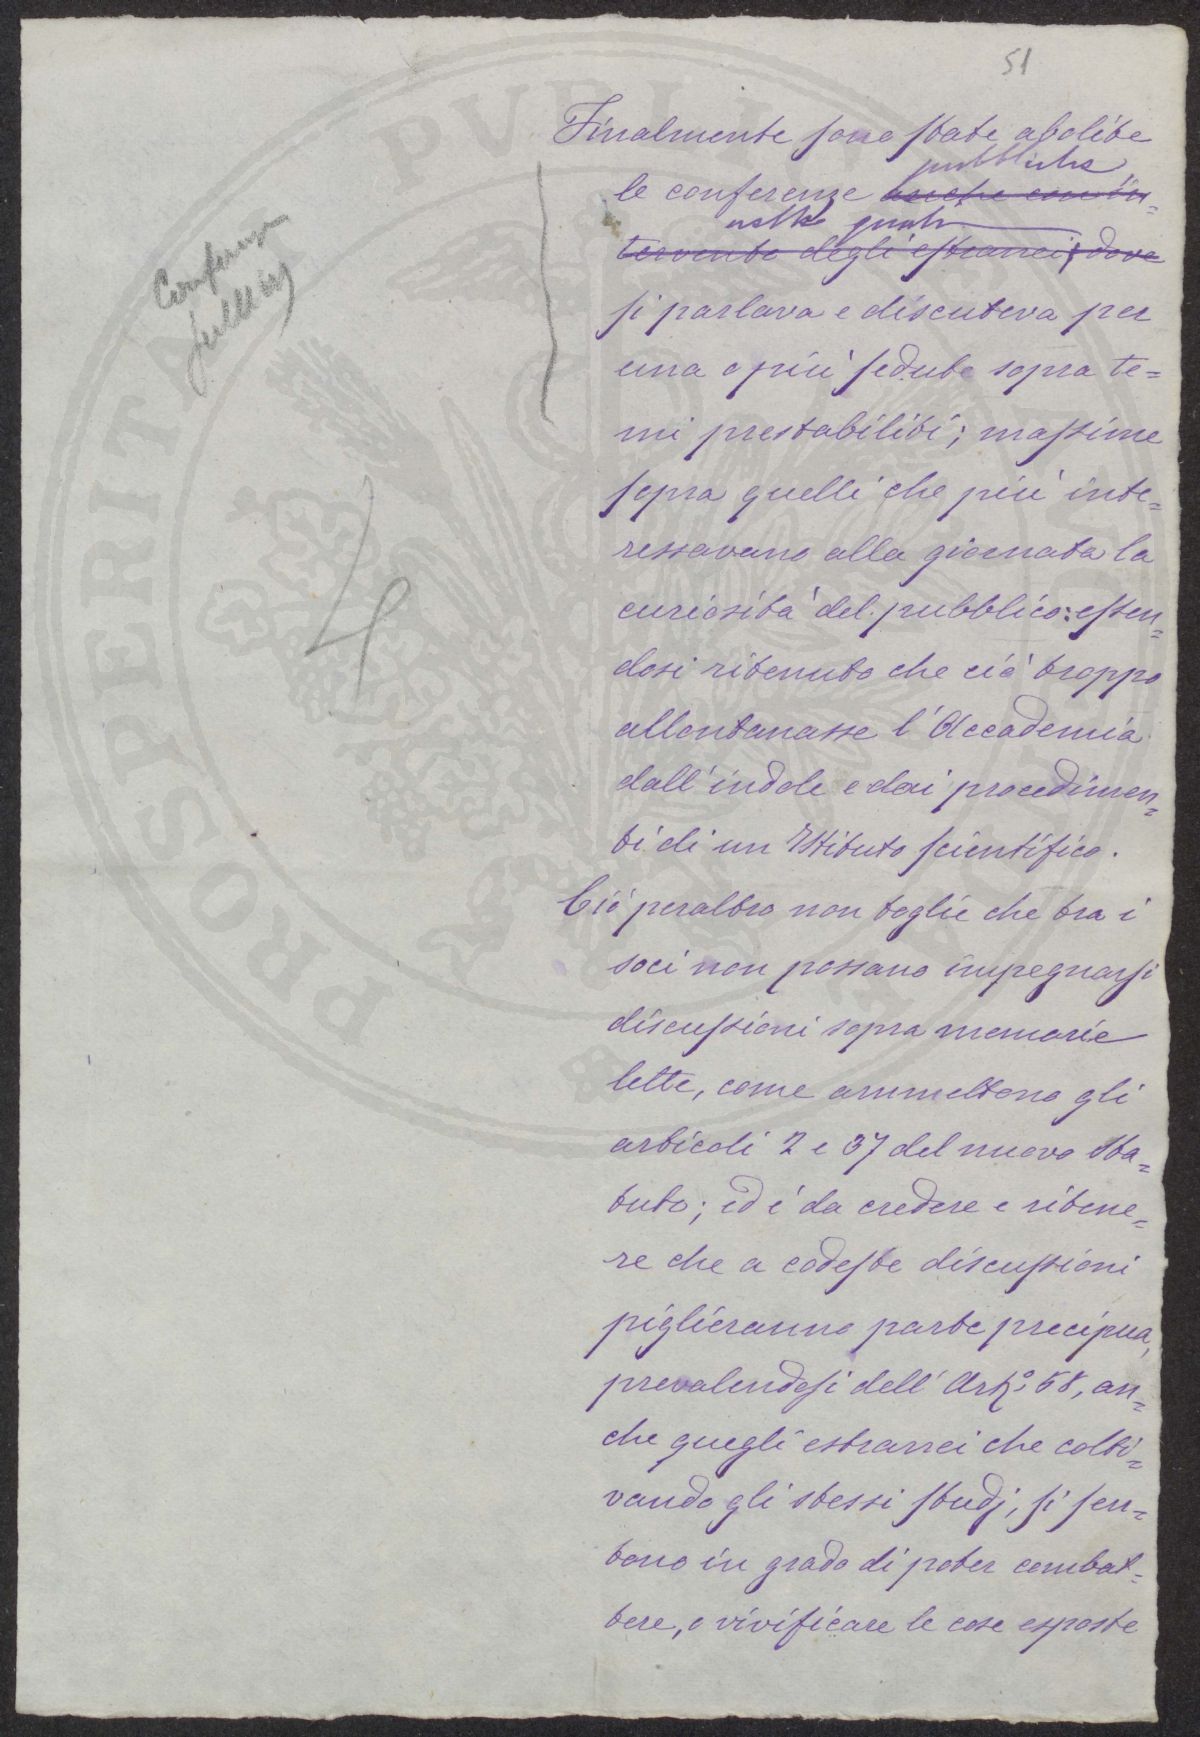 51
Finalmente sono state abolite
pubbliche
le conferenze anche con in=
nelle quali
tervento degli estranei; dove
si parlava e discuteva per
una o più sedute sopra te=
mi prestabiliti; massime
sopra quelli che più inte=
ressavano alla giornata la
curiosità del pubblico: essen=
dosi ritenuto che ciò troppo
allontanasse l'Accademia
dall'indole e dai procedimen=
ti di un Istituto scientifico.
Ciò peraltro non toglie che tra i
soci non possano impegnarsi
discussioni sopra memorie
lette, come ammettono gli
articoli 2 e 37 del nuovo Sta=
tuto; ed è da credere e ritene=
re che a codeste discussioni
piglieranno parte precipua,
prevalendosi dell'Art.º 58, an=
che quegli estranei che colti=
vando gli stessi studj, si sen=
tono in grado di poter combat=
tere, o vivificare le cose esposte
Conferenze
4
PROSPERITATI PVBLI